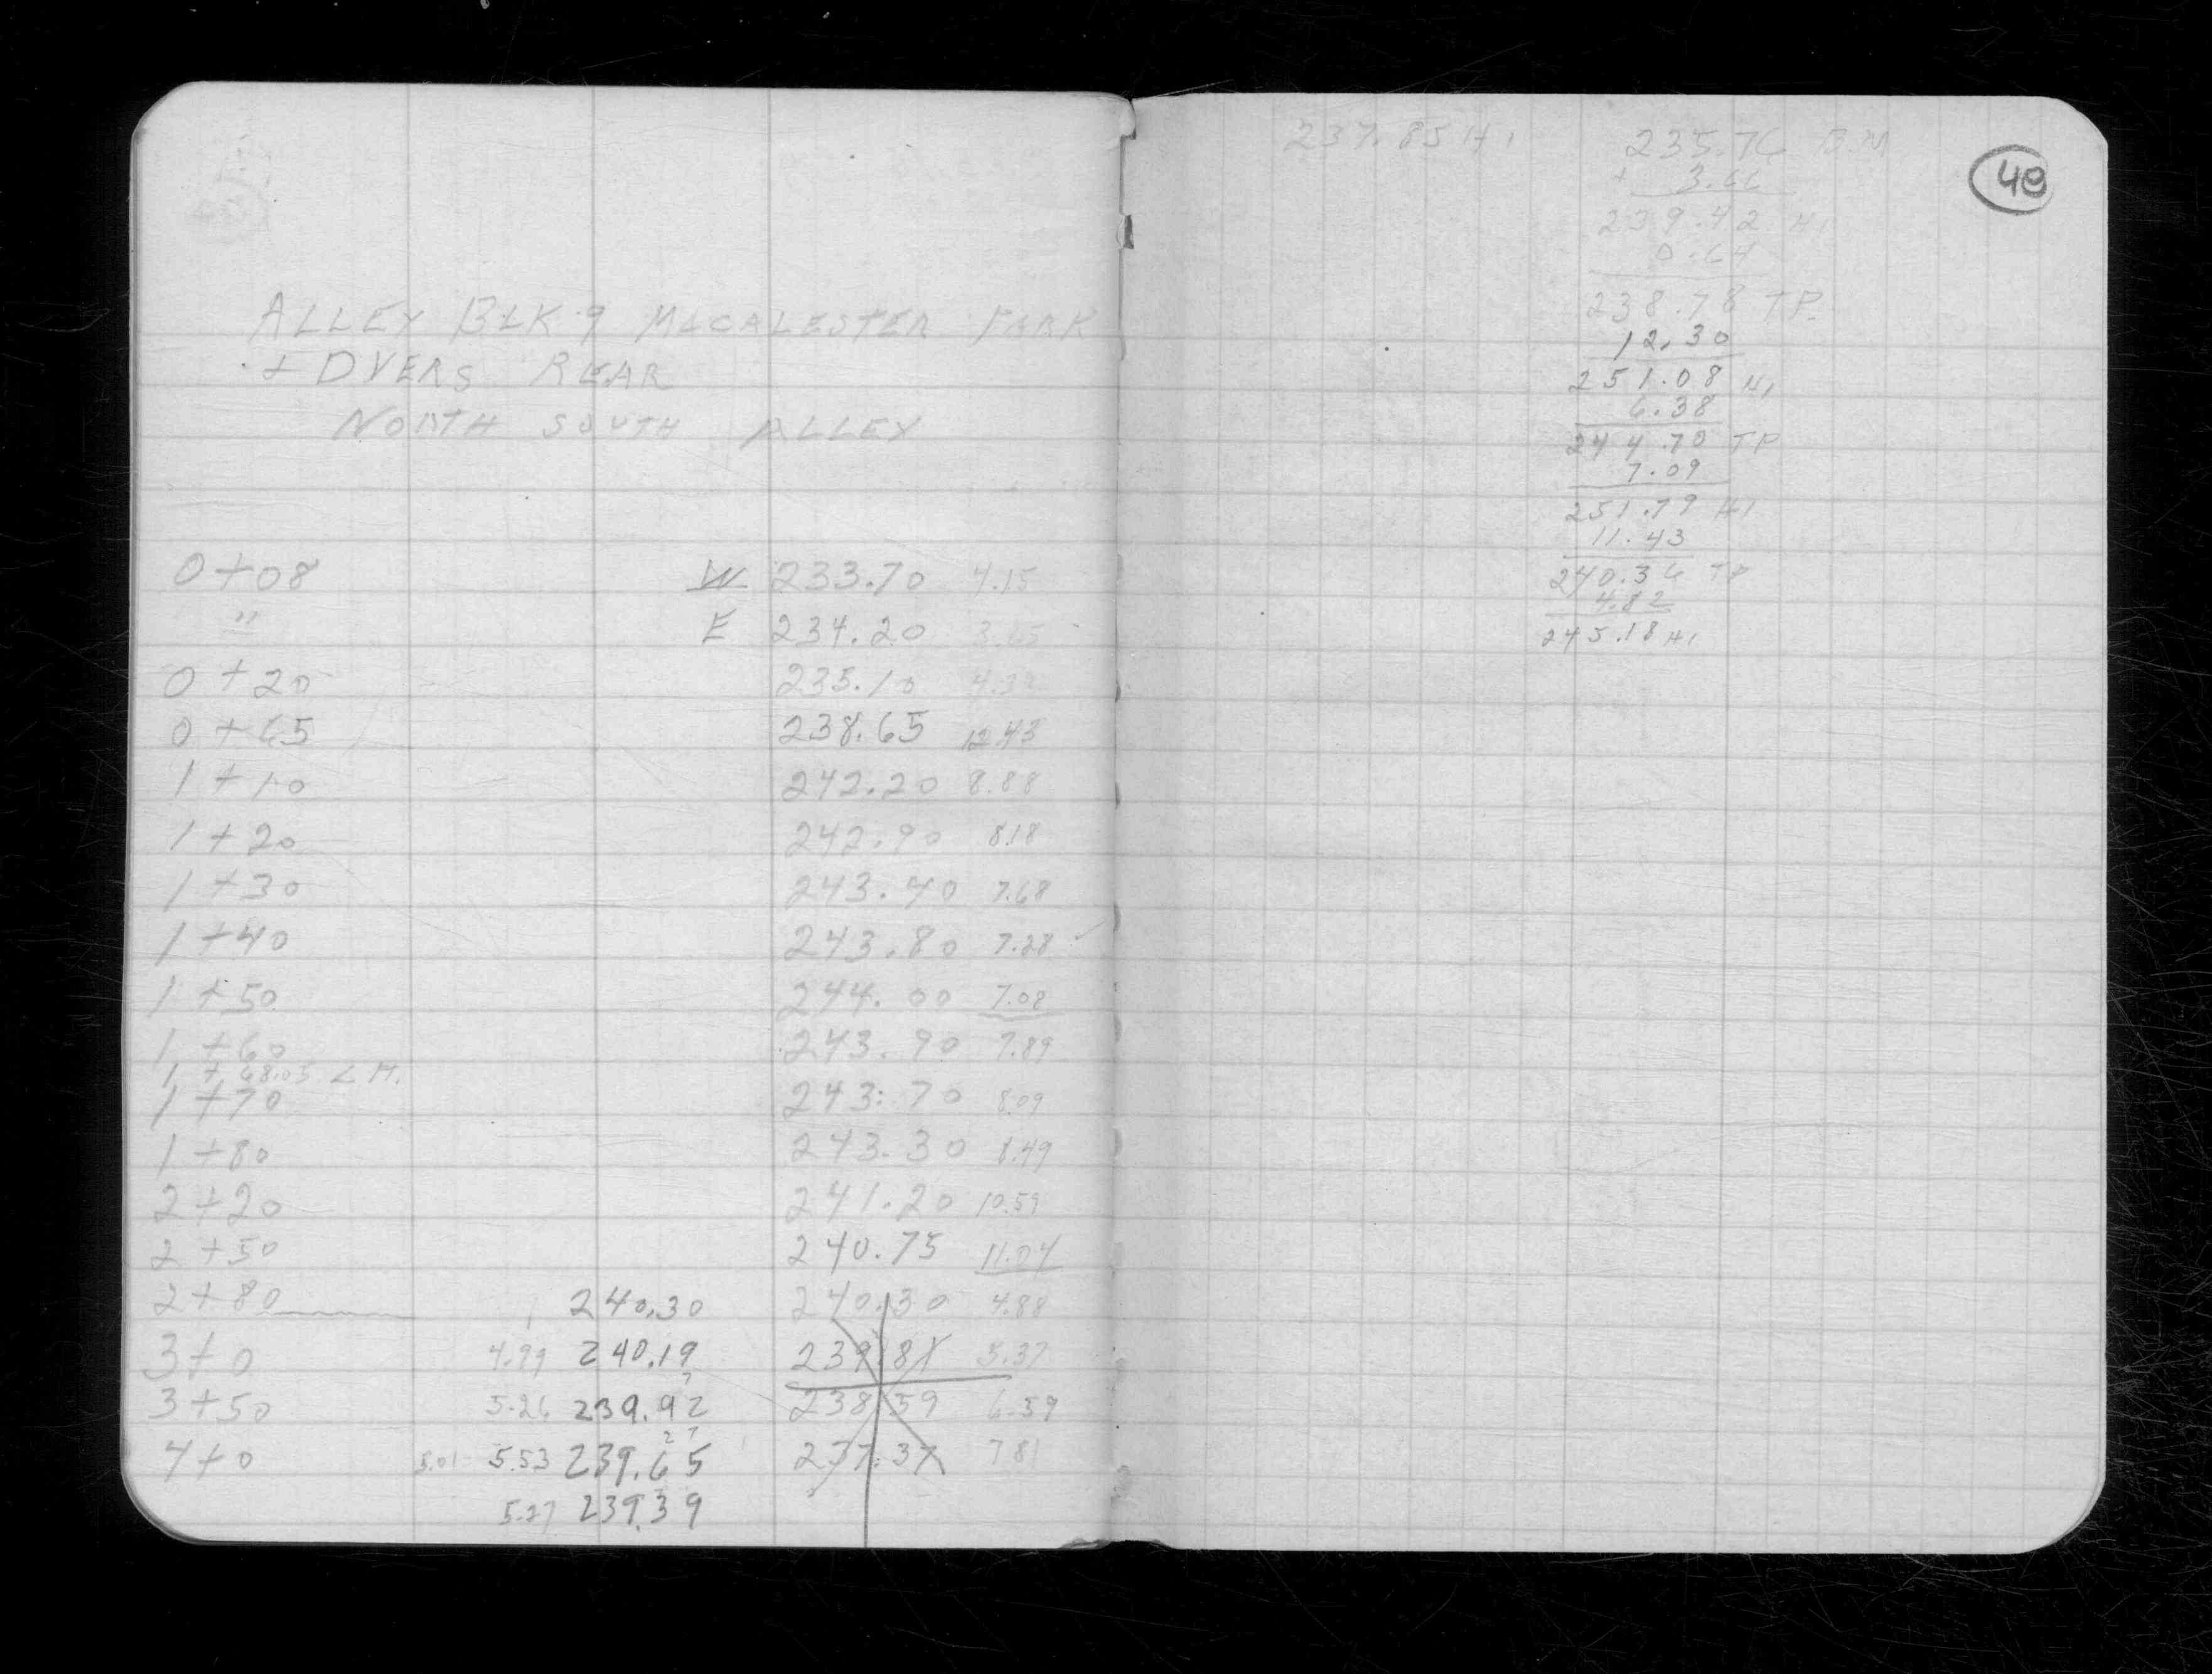 ALLEY BLK 9 MACALESTER PARK
+ DYERS REAR
NORTH SOUTH ALLEY
0+08 W 233.70 4.15
" E 234.20 3.65
0+20 235.10 4.32
0+65 238.65 12.43
1+10 242.20 8.88
1+20 242.90 8.18
1+30 243.40 7.68
1+40 243.80 7.28 ✓
1+50 244.00 7.08
1+60 243.90 7.89
1+68.05 L H.
1+70 243.70 8.09
1+80 243.30 8.49
2+20 241.20 10.59
2+50 240.75 11.04
2+80 240.30 240.30 4.88
3+0 4.99 240.19 239.81 5.37
3+50 5.26 239.92 238.59 6.59
4+0 5.01 5.53 239.65 237.37 7.81
5.27 239.39
48
237.85 HI
235.76 B.M
+ 3.66
239.42 HI
0.64
238.78 T.P.
12.30
251.08 HI
6.38
244.70 TP
7.09
251.79 HI
11.43
240.36 TP
4.82
245.18 HI